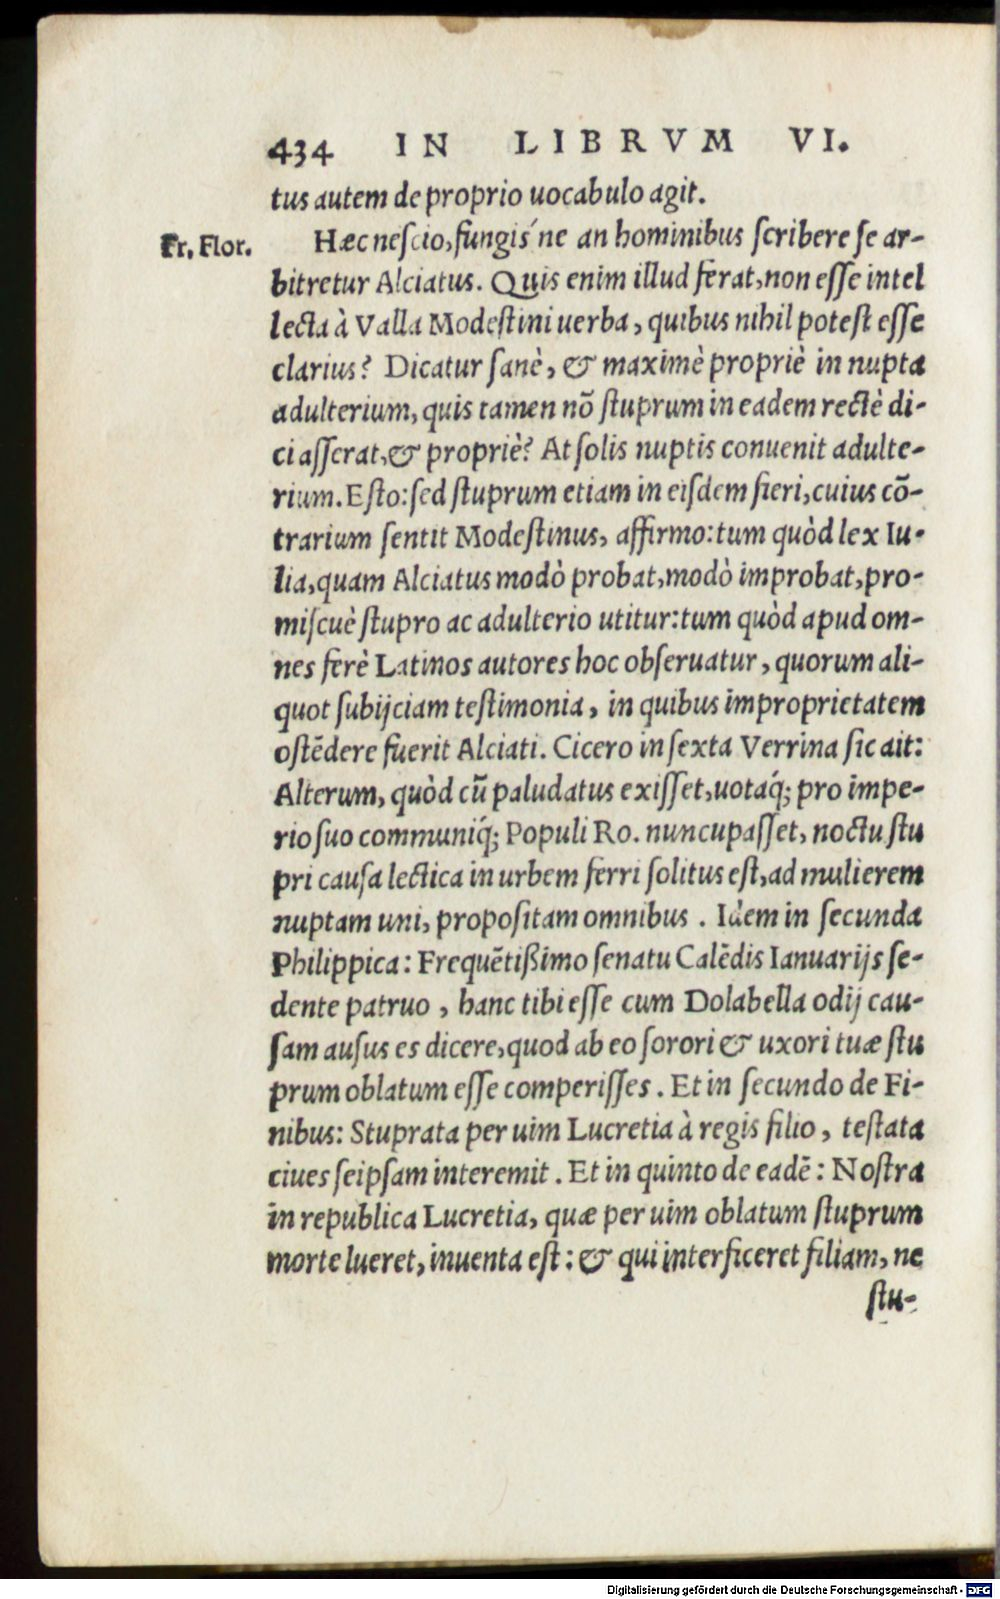 434 IN LIBRVM VI.
tus autem de proprio uocabulo agit.
Fr. Flor. Hæc nescio, fungis´ne an hominibus scribere se ar-
bitretur Alciatus. Quis enim illud ferat, non esse intel
lecta à Valla Modestini uerba, quibus nihil potest esse
clarius? Dicatur sanè, & maximè propriè in nupta
adulterium, quis tamen nō stuprum in eadem rectè di-
ci asserat, & propriè? At solis nuptis conuenit adulte-
rium. Esto: sed stuprum etiam in eisdem fieri, cuius cō-
trarium sentit Modestinus, affirmo: tum quòd lex Iu-
lia, quam Alciatus modò probat, modò improbat, pro-
miscuè stupro ac adulterio utitur: tum quòd apud om-
nes ferè Latinos autores hoc obseruatur, quorum ali-
quot subijciam testimonia, in quibus improprietatem
ostēdere fuerit Alciati. Cicero in sexta Verrina sic ait:
Alterum, quòd cū paludatus exisset, uotaq́; pro impe-
rio suo communiq́; Populi Ro. nuncupasset, noctu stu
pri causa lectica in urbem ferri solitus est, ad mulierem
nuptam uni, propositam omnibus. Idem in secunda
Philippica: Frequētißimo senatu Calēdis Ianuarijs se-
dente patruo, hanc tibi esse cum Dolabella odij cau-
sam ausus es dicere, quod ab eo sorori & uxori tuæ stu
prum oblatum esse comperisses. Et in secundo de Fi-
nibus: Stuprata per uim Lucretia à regis filio, testata
ciues seipsam interemit. Et in quinto de eadē: Nostra
in republica Lucretia, quæ per uim oblatum stuprum
morte lueret, inuenta est: & qui interficeret filiam, ne
stu-
Digitalisierung gefördert durch die Deutsche Forschungsgemeinschaft - DFG